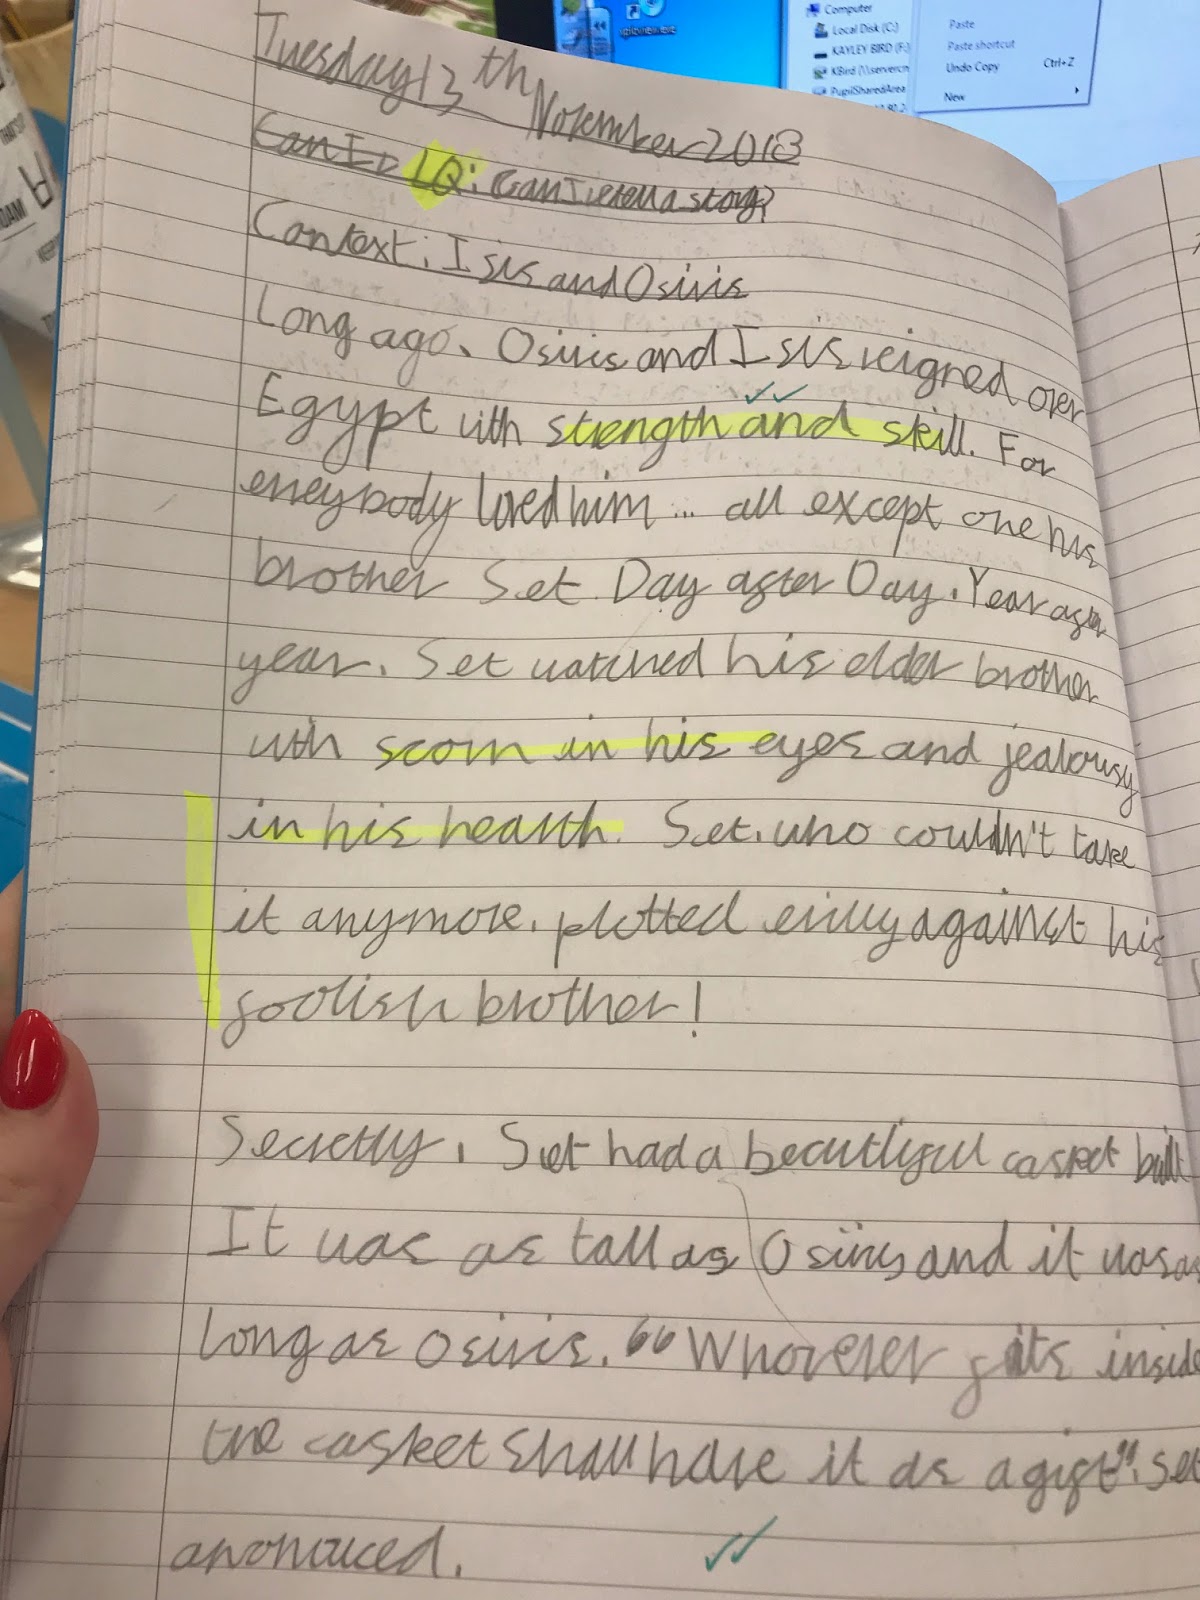 Computer
Local Disk (C:)
KAYLEY BIRD (F:)
KBird (\\servercn
PupilSharedArea
Paste
Paste shortcut
Undo Copy Ctrl+Z
New
Tuesday 13th November 2018
Can I LQ: Can I retell a story?
Context: Isis and Osiris
Long ago, Osiris and Isis reigned over
Egypt with strength and skill. For
eneybody loved him... all except one his
brother Set. Day after Day, Year after
year, Set watched his elder brother
with scorn in his eyes and jealousy
in his hearth. Set, who couldn't take
it anymore, plotted evilly against his
foolish brother!
Secretly, Set had a beautiful casket built
It was as tall as Osiris and it was as
long as Osiris. "Whoever fits inside
the casket shall have it as a gift". Set
anonouced.